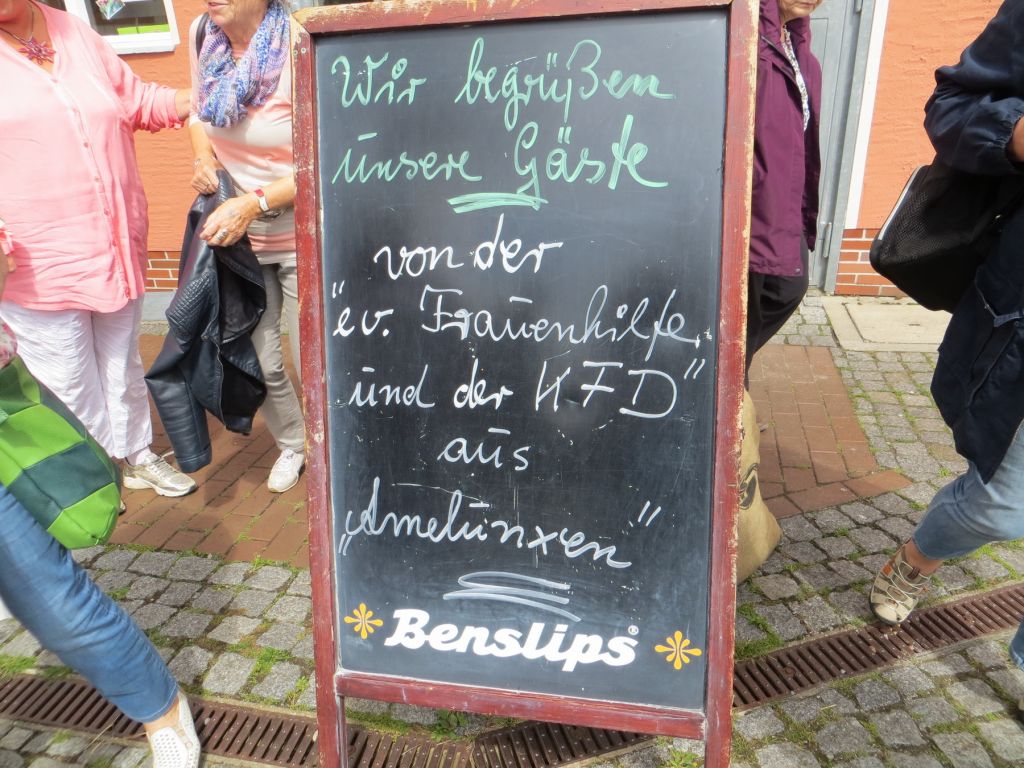 Wir begrüßen
unsere Gäste
von der
"ev. Frauenhilfe
und der KFD"
aus
„Amelunxen"
Benslips®